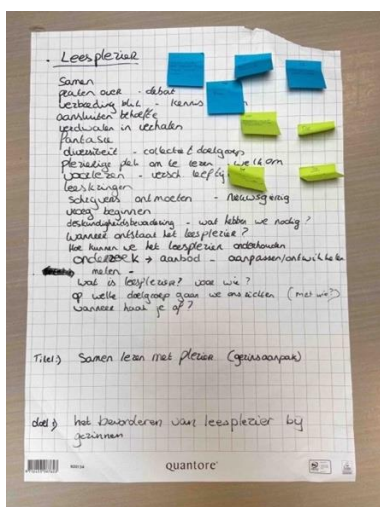 . Leesplezier
Samen
praten over - debat
verbeelding plek - kennis
aansluiten behoefte
verdwalen in verhalen
fantasie
diversiteit - collectie & doelgroep
plezierige plek om te lezen - welkom
voorlezen - versch. leeftij
leeskringen
schrijvers ontmoeten - nieuwsgierig
vroeg beginnen
deskundigheidsbevordering - wat hebben we nodig?
wanneer ontstaat het leesplezier?
Hoe kunnen we het leesplezier onderhouden
onderzoek → aanbod - aanpassen/ontwikkelen
meten -
wat is leesplezier? voor wie?
op welke doelgroep gaan we ons richten (met wie?)
wanneer haak je af?
Titel:) Samen lezen met plezier (gezinsaanpak)
doel:) het bevorderen van leesplezier bij
gezinnen
quantore